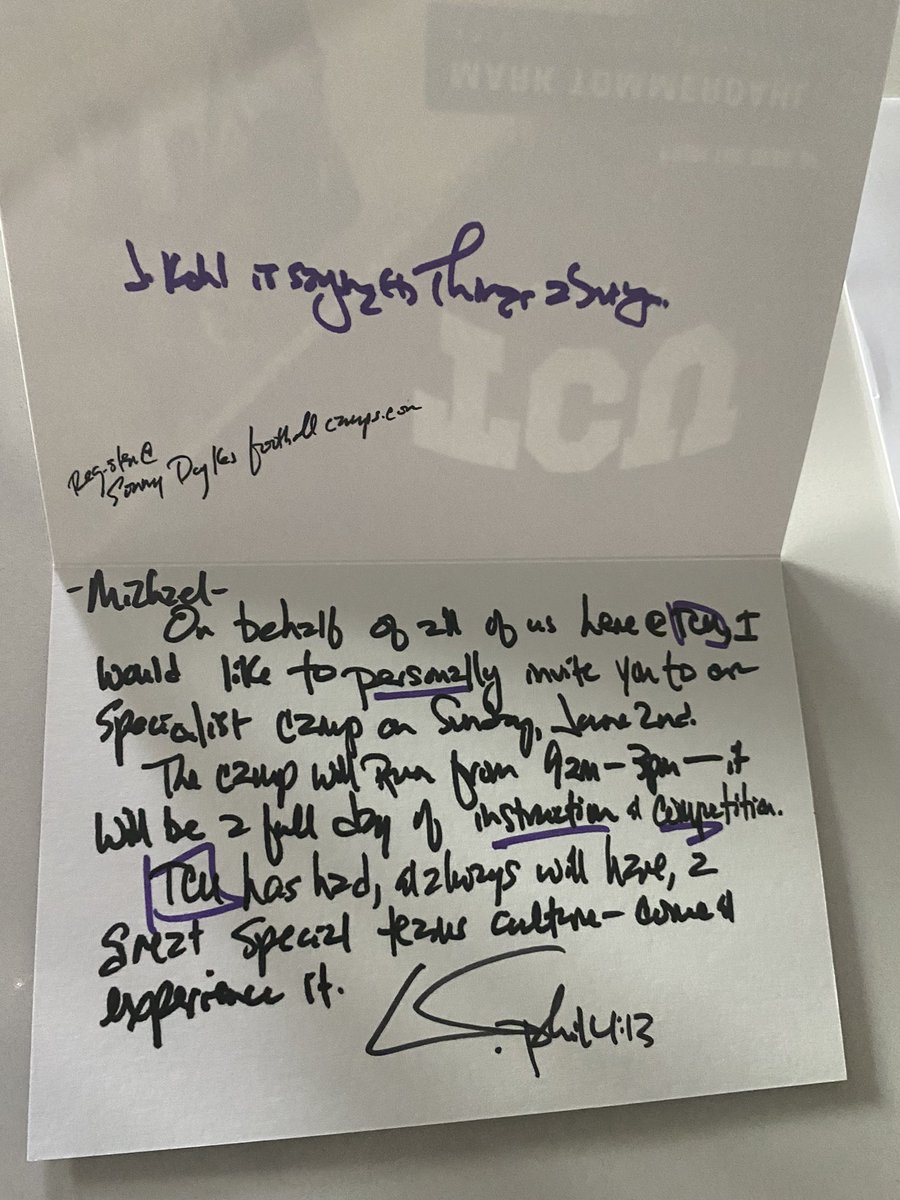 J. Kohl is saying things
Register @
Sonny Dykes football camps.com
-Michael-
On behalf of all of us here @ TCU, I
would like to personally invite you to our
specialist camp on Sunday, June 2nd.
The camp will Run from 9am-3pm-it
will be a full day of instruction & competition.
TCU has had, & always will have, a
great special teams culture-come &
experience it.
Phil 4:13
MARK TOMMERDAHL
TCU